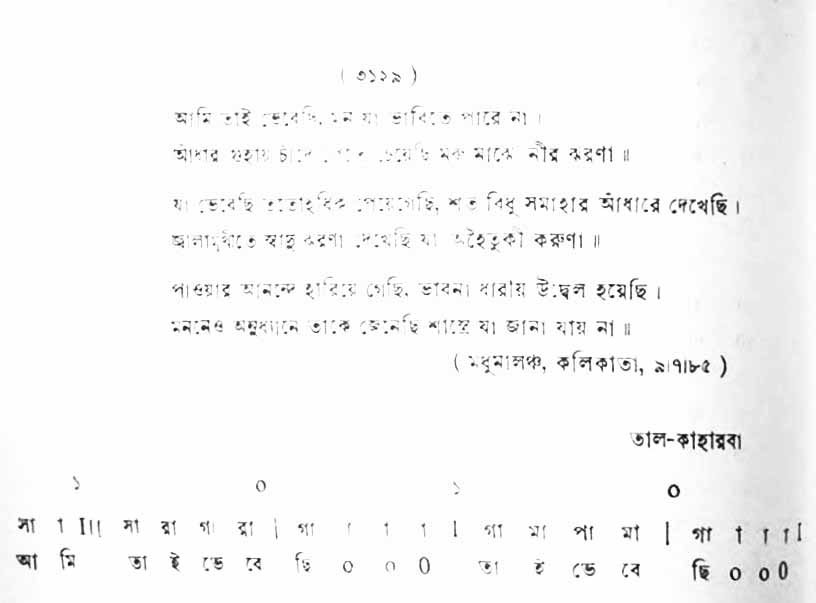 ( ৩১২৯ )
আমি তাই ভেবেছি, মন যা ভাবিতে পারে না ।
আঁধার গুহায় চাঁদে চেয়েছি মরু মাঝে নীর ঝরণা ॥
যা ভেবেছি ততোহধিক পেয়েগেছি, শত বিধু সমাহার আঁধারে দেখেছি ।
জ্বালামুখীতে স্বাদু ঝরণা দেখেছি যা অহৈতুকী করুণা ॥
পাওয়ার আনন্দে হারিয়ে গেছি, ভাবনা ধারায় উদ্বেল হয়েছি ।
মননেও অনুধ্যানে তাকে জেনেছি শাস্ত্রে যা জানা যায় না ॥
( মধুমালঞ্চ, কলিকাতা, ৯।৭।৮৫ )
তাল-কাহারবা
১ ০ ১ ০
সা া I।। সা রা গা রা | গা া া া I গা মা পা মা | গা া া া I
আ মি তা ই ভে বে ছি ০ ০ ০ তা ই ভে বে ছি ০ ০ ০